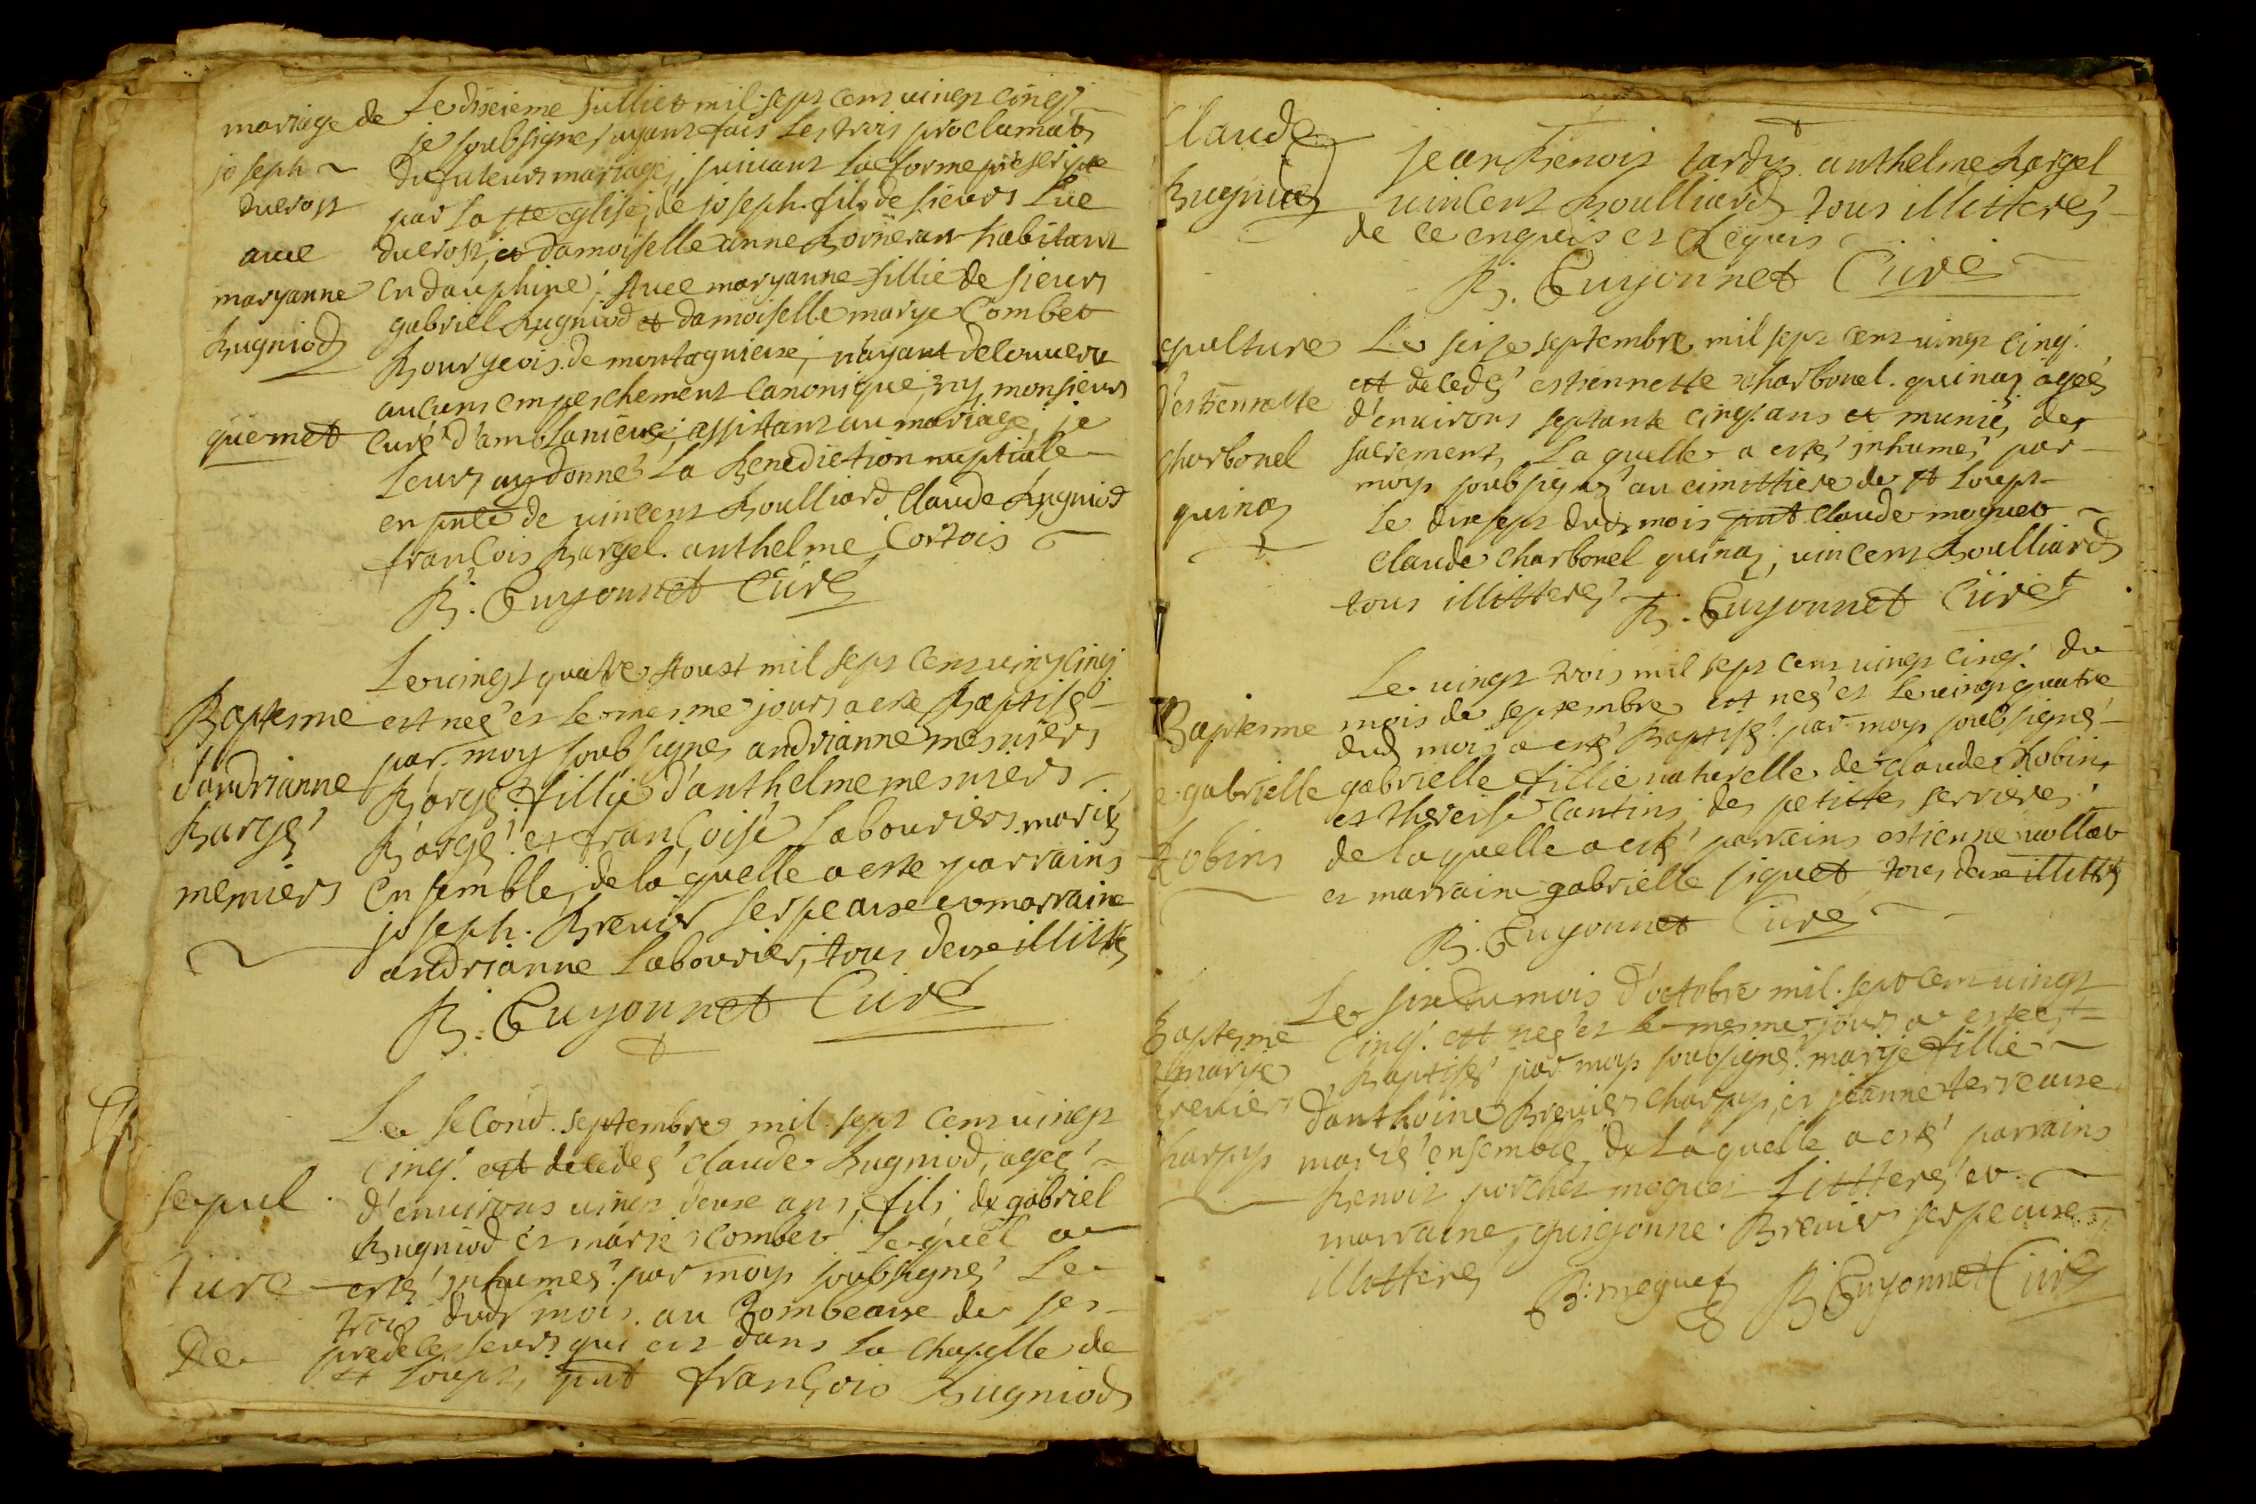 mariage de
joseph
ducrost
avec
maryanne
Bugniod
guemet
Le diseieme Julliet mil sept cent vingt cinq
je soubsigné ayant fais les trois proclamaõs
du futeurs mariage, suivant la forme prescripte
par la ste eglise, de joseph fils de sieurs Luc
ducrost, et damoiselle anne habitant
en dauphiné; Avec maryanne fillie de sieurs
gabriel Bugniod et damoiselle marye Combet
Bourgeois de montagnieux, n'ayant decouvert
aucuns empeschement canonique, ny monsieurs
curé d'amblanieux, assistant au mariage, je
leurs ay donné la Benediction nuptiale
en pñce de vincent Boulliard, Claude Bugniod
françois Bargel. anthelme Cortois
B. Guyonnet Curé
Baptesme
d'andrianne
Bargé
mesniers
Le vingt quatre Aoust mil sept cent vingt cinq
est neé et le mesme jours a esté Baptisé
par moy soubsigné andrianne mesniers
Bargé fillie d'anthelme mesniers
Bargé et françoise Labouriers mariés
ensemble, de laquelle a esté parrains
joseph Brevier serpeaux et marraine
andrianne Labourier, tous deux illitte
B. Guyonnet Curé
Sepul
ture
De
Le second septembre mil sept cent vingt
cinq est decedé claude Bugniod, agee
d'environs vingt deux ans, fils de gabriel
Bugniod et marie Combet Lequel a
esté inhumé par moy soubsigné Le
trois dud mois au Tombeaux de ses
predecesseurs qui est dans la chapelle de
st Loupt, pñt françois Bugniod
Claude
Bugniod
jean Benoit tardy anthelme Bargel
vincent Boulliard tous illitterés
de ce enquis et Requis
B. Guyonnet Curé
epulture
d'estiennette
charbonel
quinaz
Le seize septembre mil sept cent vingt cinq
est decedé estiennette charbonel quinaz ageé
d'environs septante cinq ans et munié des
sacrements Laquelle a esté inhumé par
moy soubsigné au cimettiere de st Loupt
Le dix sept dud mois pñt Claude moguet
Claude charbonel quinaz, vincent Boulliard
tous illitterés B. Guyonnet Curé
Baptesme
e gabrielle
Robins
Le vingt trois mil sept cent vingt cinq du
mois de septembre est neé et le vingt quatre
dud mois a esté Baptisé par moy soubsigné
gabrielle fillie naturelle de claude Robins
et Cantins des petittes serrieres
de laquelle a esté parrains estienne
et marraine gabrielle siquet tous deux illittes
B. Guyonnet Curé
Baptesme
marye
revier
harpy
Le six du mois d'octobre mil sept cent vingt
cinq est neé et le mesme jours a esteé
Baptisé par moy soubsigné marye fillie
d'anthoine Brevier charpy, et jeanne terreaux
mariés ensemble, de Laquelle a esté parrains
Benoit porchet moguet Littteré et
marraine Brevier serpeaux
illitteré B. moguet B Guyonnet Curé